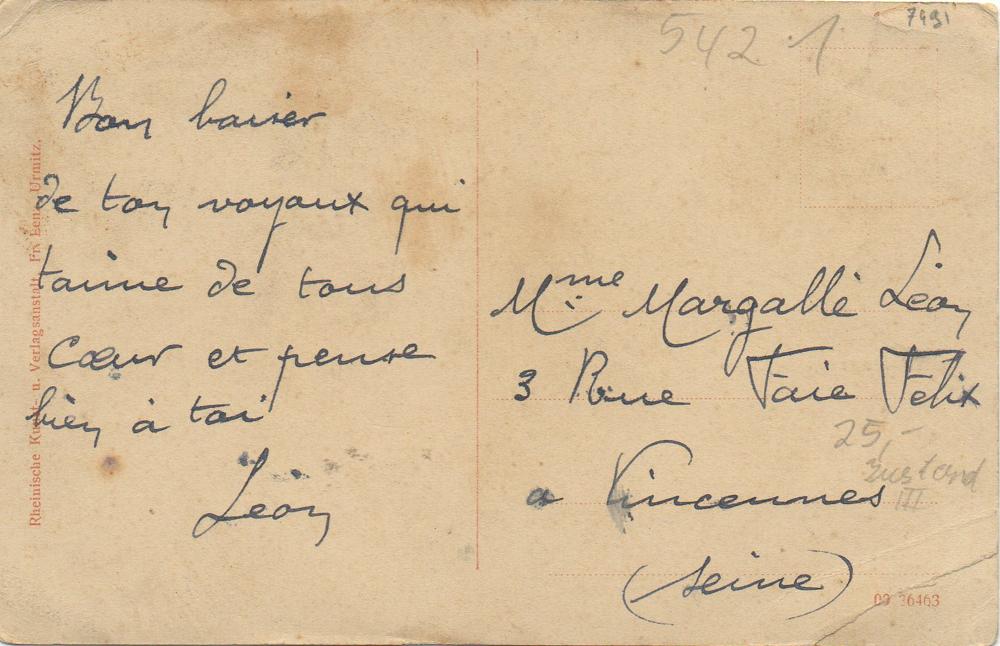 7491
542 1
Bon baiser
de ton voyaux qui
taime de tous
Cœur et pense
bien à toi
Leon
Mme Margallé Léon
3 Rue Faie Felix
a Vincennes
(seine)
25,-
Zustand
III
Rheinische Kunst- u. Verlagsanstalt, Fr. Eenz, Urmitz,
09 36463